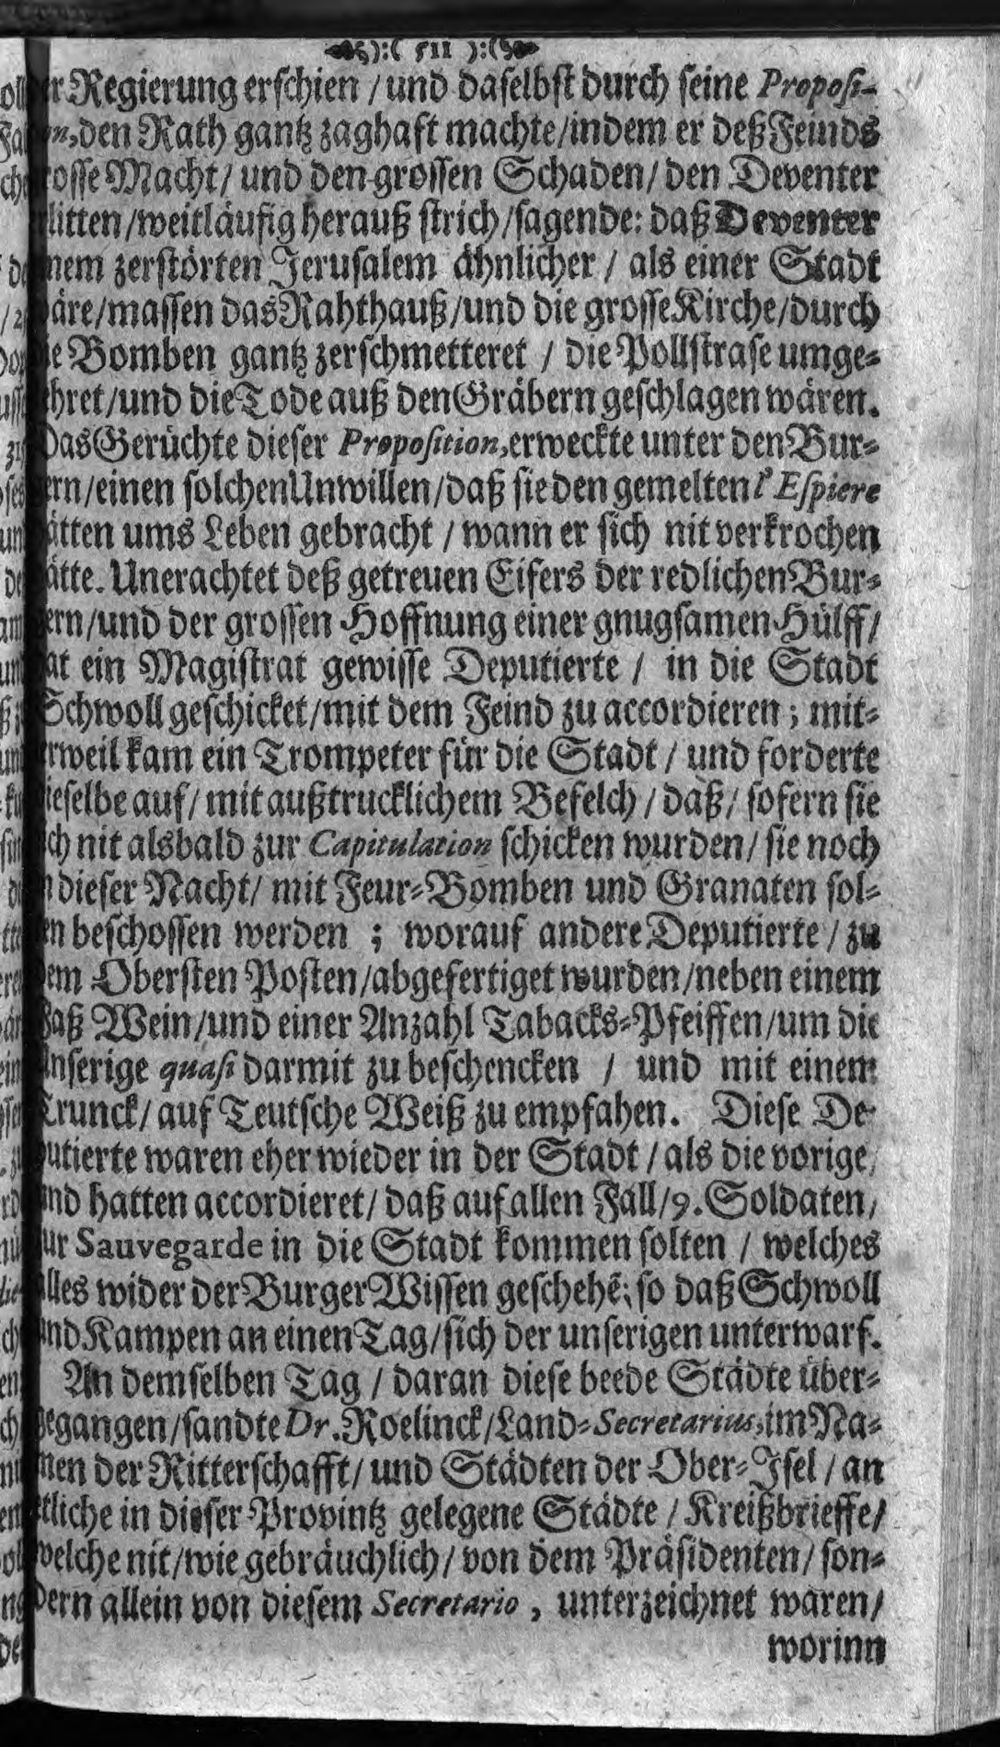 ):( 511 ):(
er Regierung erschien / und daselbst durch seine Proposi-
on, den Rath gantz zaghaft machte/indem er deß Feinds
rosse Macht/ und den grossen Schaden/ den Deventer
litten/weitläufig herauß strich/sagende: daß Deventer
nem zerstörten Jerusalem ähnlicher / als einer Stadt
äre/massen das Rahthauß/und die grosse Kirche/durch
ie Bomben gantz zerschmetteret / die Pollstrase umge-
hret/und die Tode auß den Gräbern geschlagen wären.
Das Gerüchte dieser Proposition, erweckte unter den Bur-
ern/einen solchen Unwillen/daß sie den gemelten l' Espiere
ätten ums Leben gebracht / wann er sich nit verkrochen
ätte. Unerachtet deß getreuen Eifers der redlichen Bur-
ern/und der grossen Hoffnung einer gnugsamen Hülff/
at ein Magistrat gewisse Deputierte / in die Stadt
Schwoll geschicket/mit dem Feind zu accordieren; mit-
erweil kam ein Trompeter für die Stadt / und forderte
ieselbe auf/ mit außtrucklichem Befelch / daß/ sofern sie
ch nit alsbald zur Capitulation schicken wurden/ sie noch
n dieser Nacht/ mit Feur-Bomben und Granaten sol-
en beschossen werden ; worauf andere Deputierte / zu
em Obersten Posten/abgefertiget wurden/neben einem
Faß Wein/und einer Anzahl Tabacks-Pfeiffen/um die
Unserige quasi darmit zu beschencken / und mit einem
Trunck/ auf Teutsche Weiß zu empfahen. Diese De-
putierte waren eher wieder in der Stadt / als die vorige,
und hatten accordieret/ daß auf allen Fall/9. Soldaten/
zur Sauvegarde in die Stadt kommen solten / welches
alles wider der Burger Wissen geschehẽ; so daß Schwoll
und Kampen an einen Tag/sich der unserigen unterwarf.
An demselben Tag / daran diese beede Städte über-
gegangen/sandte Dr. Roelinck/Land-Secretarius, im Na-
men der Ritterschafft/ und Städten der Ober-Isel / an
etliche in dieser Provintz gelegene Städte / Kreißbrieffe/
welche nit/wie gebräuchlich/ von dem Präsidenten/ son-
dern allein von diesem Secretario , unterzeichnet waren/
worinn